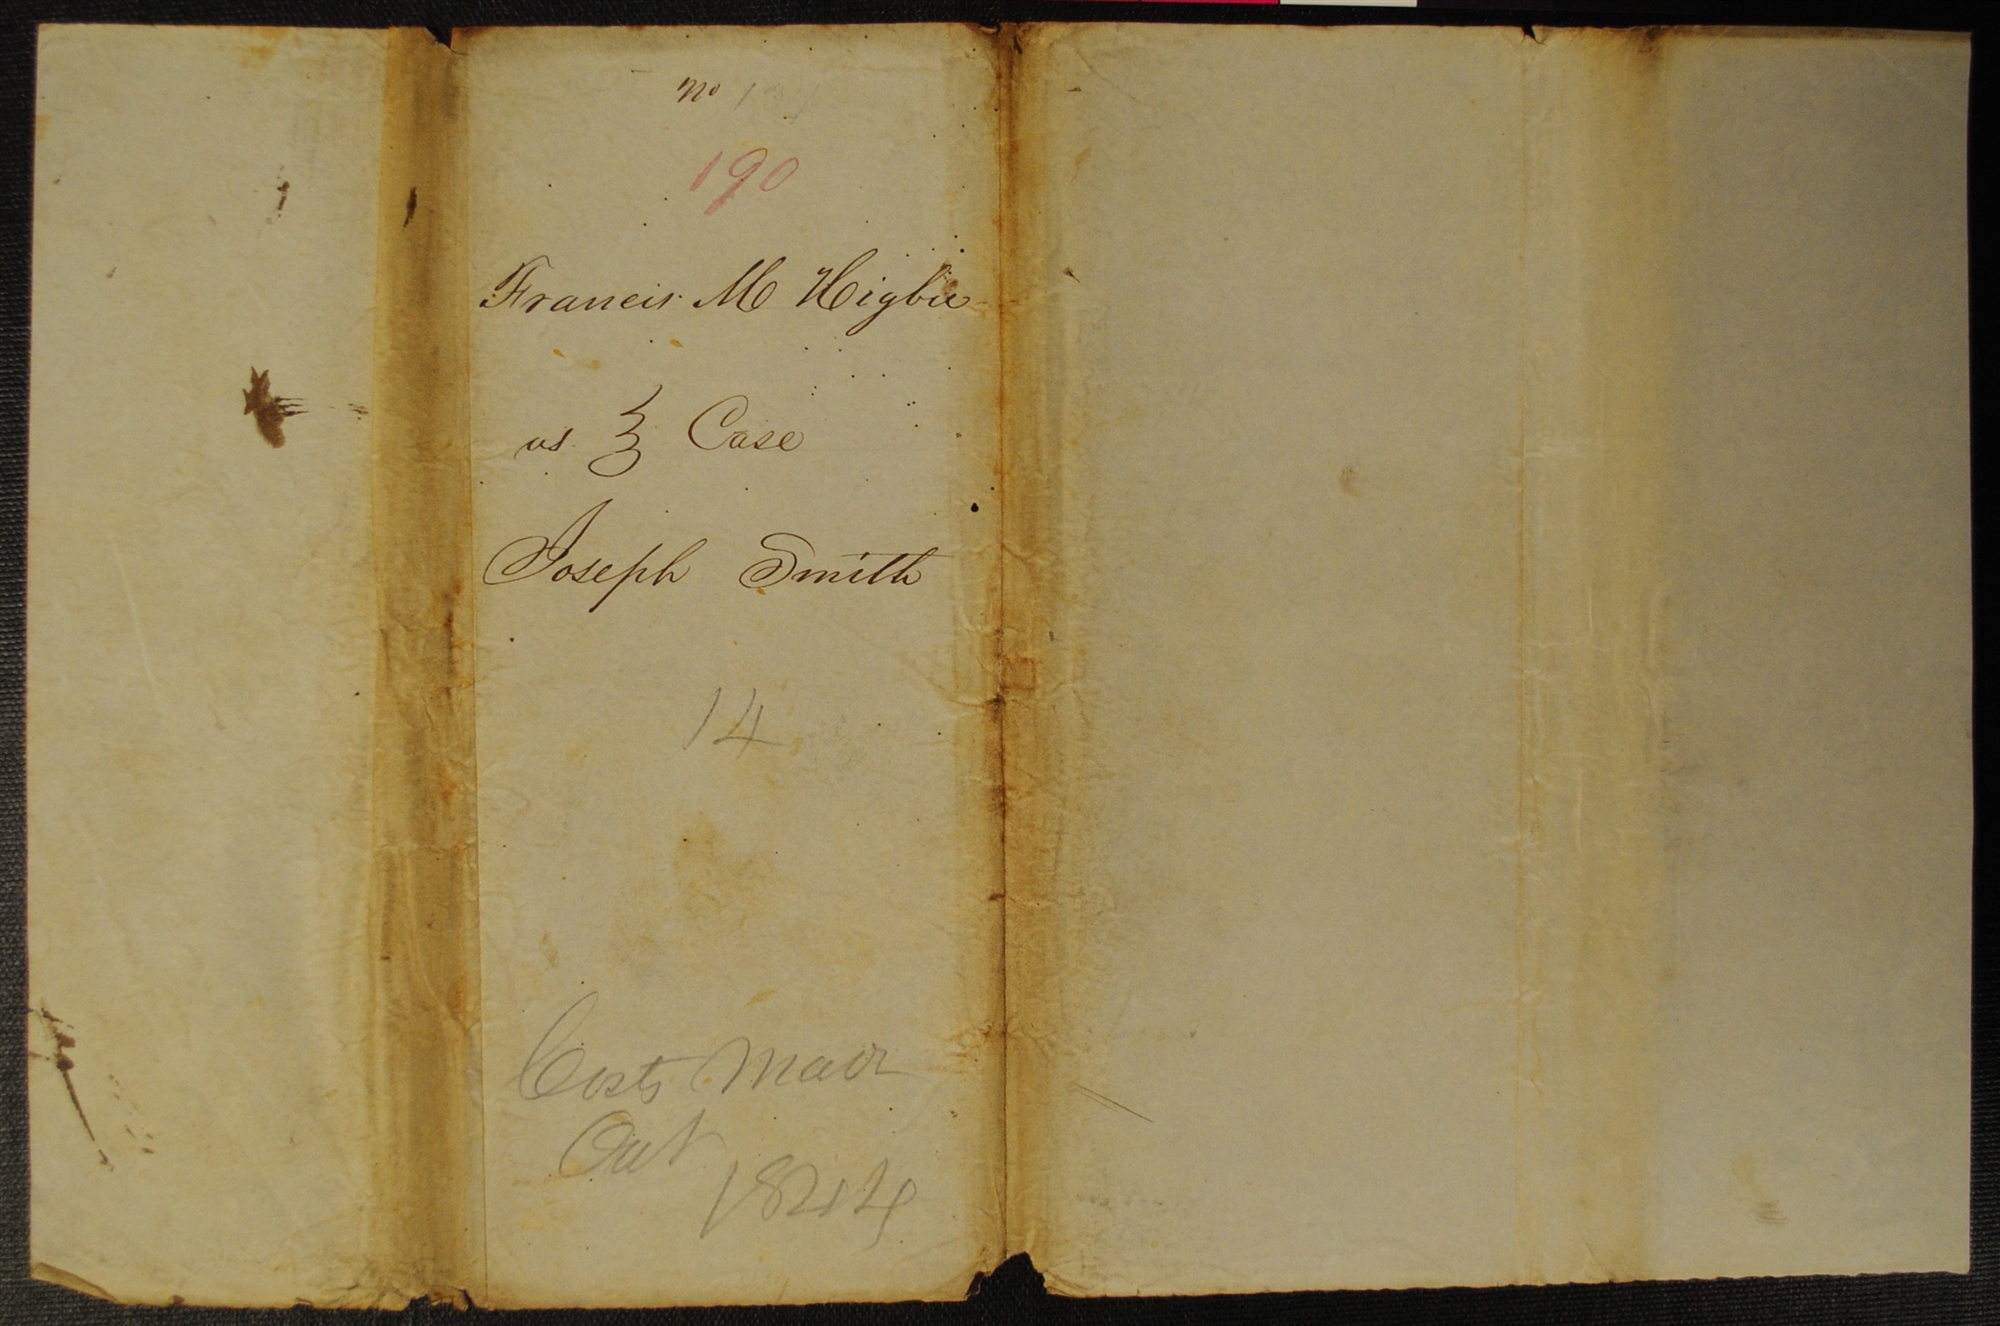 No
190
Francis M Higbee
vs } Case
Joseph Smith
14
Costs Made
Out
1844